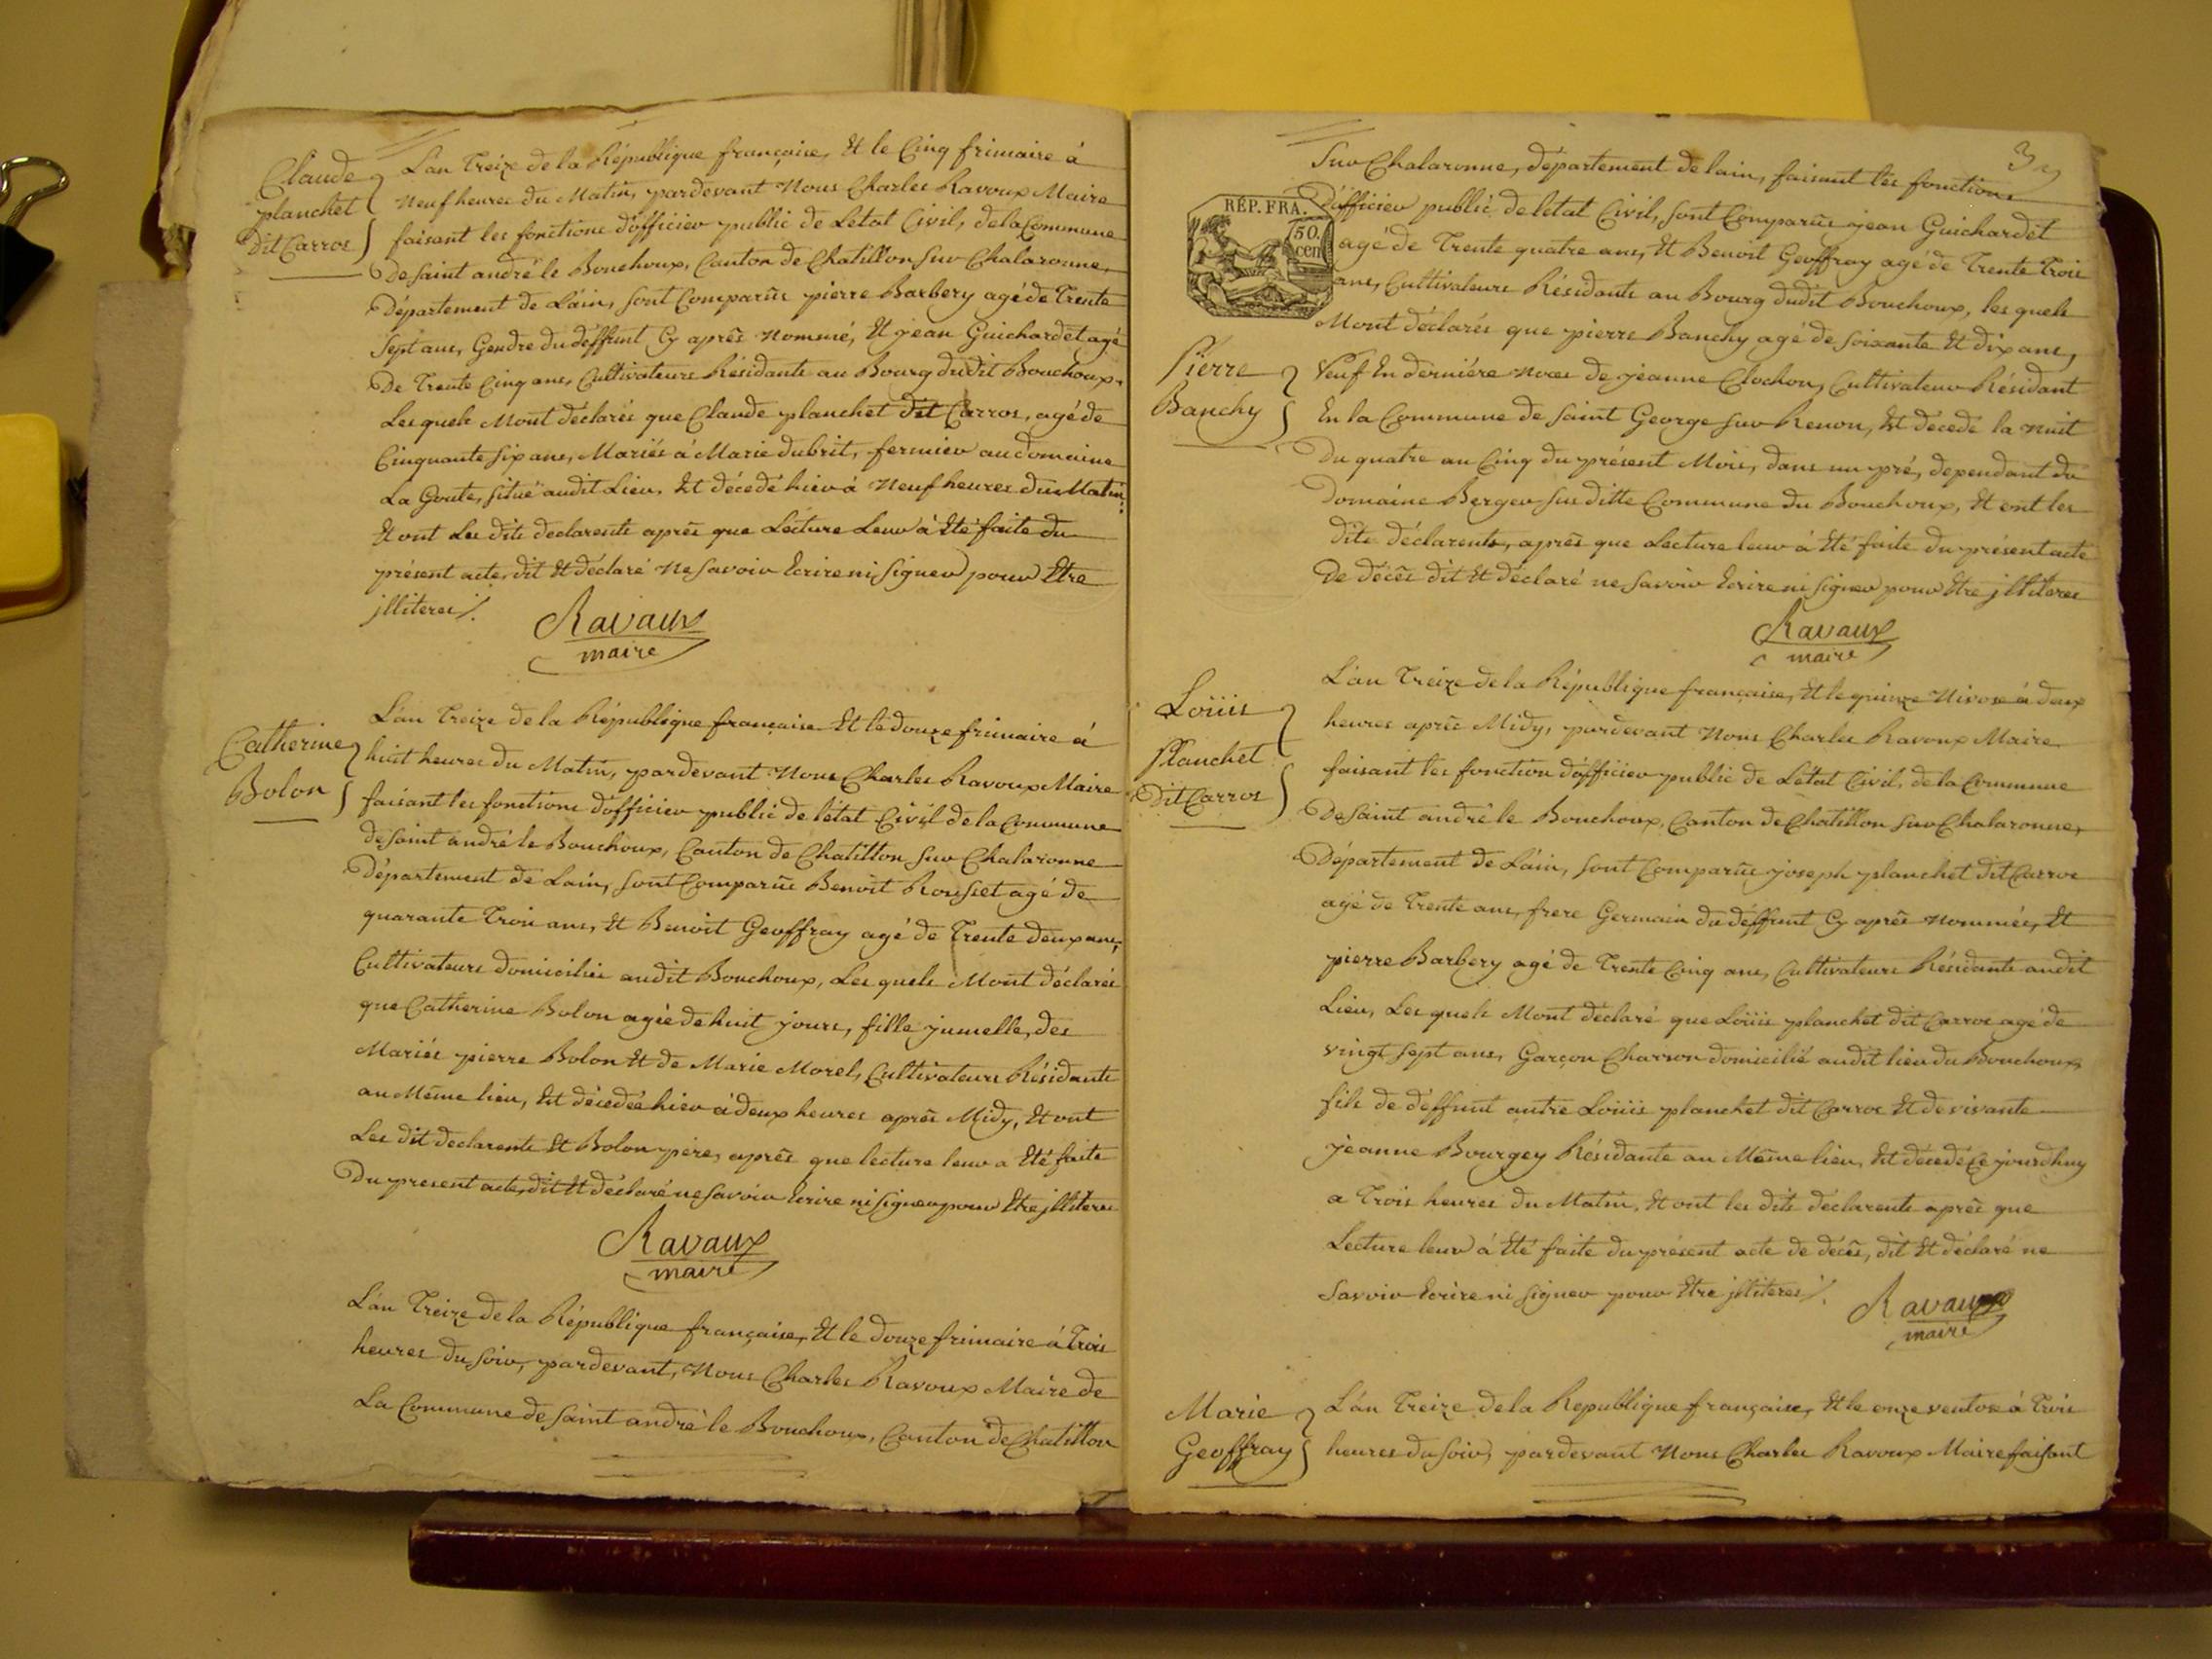 Claude
planchet
dit Carros
L'an Treize de la République française, Et le Cinq frimaire à
Neuf heures du Matin, pardevant Nous Charles Ravoux Maire
faisant les fonctions d'officier public de L'etat Civil, de la Commune
De saint andré le Bouchoux, Canton de Chatillon sur Chalaronne,
Département de L'ain, sont Comparûs pierre Barbery agé de Trente
Sept ans, Gendre du déffunt Cy aprês Nommé, Et jean Guichardet agé
De Trente Cinq ans, Cultivateurs Résidants au Bourg dudit Bouchoux.
Les quels Mont déclarés que Claude planchet dit Carros, agé de
Cinquante six ans, Mariés à Marie dubrit, fermier au domaine
La Goute, situé audit Lieu, Et décedé hier à Neuf heures du Matin;
Et ont Les dits declarents aprês que Lecture Leur à Eté faite du
présent acte, dit Et déclaré Ne savoir Ecrire ni signer pour Etre
jlliteres /.
Ravaux
maire
Catherine
Bolon
L'an Treize de la République française Et le douze frimaire à
huit heures du Matin, pardevant Nous Charles Ravoux Maire
faisant les fonctions d'officier public de l'état Civil de la Commune
de saint andré le Bouchoux, Canton de Chatillon sur Chalaronne
Département de Lain, sont Comparûs Benoit Rousset agé de
quarante Trois ans, Et Benoit Geoffray agé de Trente deux ans,
Cultivateurs domiciliés audit Bouchoux, Les quels Mont déclarés
que Catherine Bolon agée de huit jours, fille jumelle, des
Mariés pierre Bolon Et de Marie Morel, Cultivateurs Résidants
au Même lieu, Est décedée hier à deux heures aprês Midy, Et ont
Les dit declarents Et Bolon pere, aprês que lecture leur a Eté faite
Du present acte, dit Et déclaré ne savoir Ecrire ni signer pour Etre jlliteres
Ravaux
maire
L'an Treize de la République française, Et le douze frimaire à Trois
heures du soir, pardevant, Nous Charles Ravoux Maire de
La Commune de saint andré le Bouchoux, Canton de Chatillon
3
Sur Chalaronne, département de lain, faisant les fonctions
RÉP. FRA.
50.
cen
D'officier public de létat Civil, sont Comparûs jean Guichardet
agé de Trente quatre ans, Et Benoit Geoffray agé de Trente Trois
ans, Cultivateurs Résidants au Bourg dudit Bouchoux, les quels
Mont déclarés que pierre Banchy agé de soixante Et dix ans,
Pierre
Banchy
Veuf En derniére Noces de jeanne Clochon, Cultivateur Résidant
En la Commune de saint George sur Renon, Est décedé la nuit
Du quatre au Cinq du présent Mois, dans un pré, dependant du
Domaine Berger sus ditte Commune du Bouchoux, Et ont les
Dits déclarents, aprês que Lecture leur à Eté faite du présent acte
De décês dit Et déclaré ne savoir Ecrire ni signer pour Etre jlliteres
Ravaux
maire
Loüis
Planchet
Dit Carros
L'an Treize de la République française, Et le quinze Nivose à deux
heures aprês Midy, pardevant Nous Charles Ravoux Maire
faisant les fonction d'officier public de L'état Civil, de la Commune
De saint andré le Bouchoux, Canton de Chatillon sur Chalaronne,
Département de L'ain, sont Comparûs joseph planchet dit Carros
agé de Trente ans, frere Germain du déffunt Cy aprês Nommés, Et
pierre Barbery agé de Trente Cinq ans, Cultivateurs Résidants audit
Lieu, Les quels Mont déclaré que Loüis planchet dit Carros agé de
vingt sept ans, Garçon Charron domicilié audit lieu du Bouchoux
fils de déffunt autre Loüis planchet dit Carros Et de vivante
jeanne Bourgey Résidante au Même lieu, Est décedé Ce jourdhuy
a Trois heures du Matin, Et ont les dits déclarents aprês que
Lecture leur à Eté faite du présent acte de décês, dit Et déclaré ne
Savoir Ecrire ni signer pour Etre jlliteres /.
Ravaux
maire
Marie
Geoffray
L'an Treize de la Republique française, Et le onze ventose à Trois
heures du soir, pardevant Nous Charles Ravoux Maire faisant